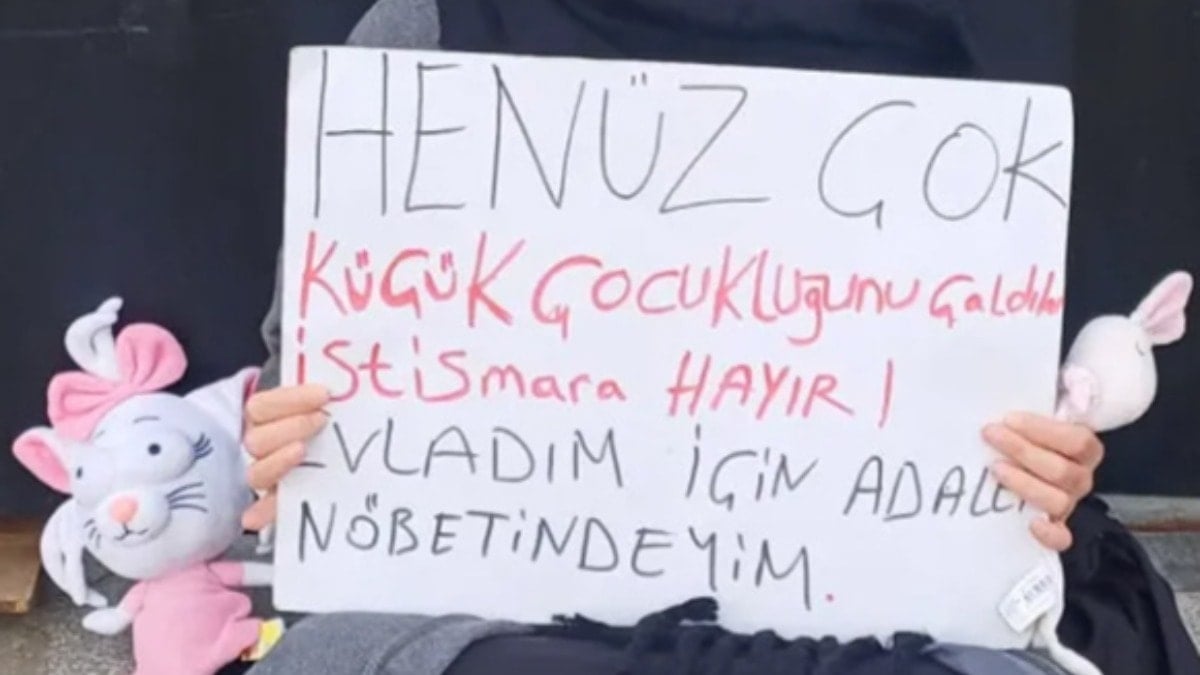 HENÜZ ÇOK
KÜÇÜK ÇOCUKLUĞUNU ÇALDILAR
İSTİSMARA HAYIR!
EVLADIM İÇİN ADALET
NÖBETİNDEYİM.